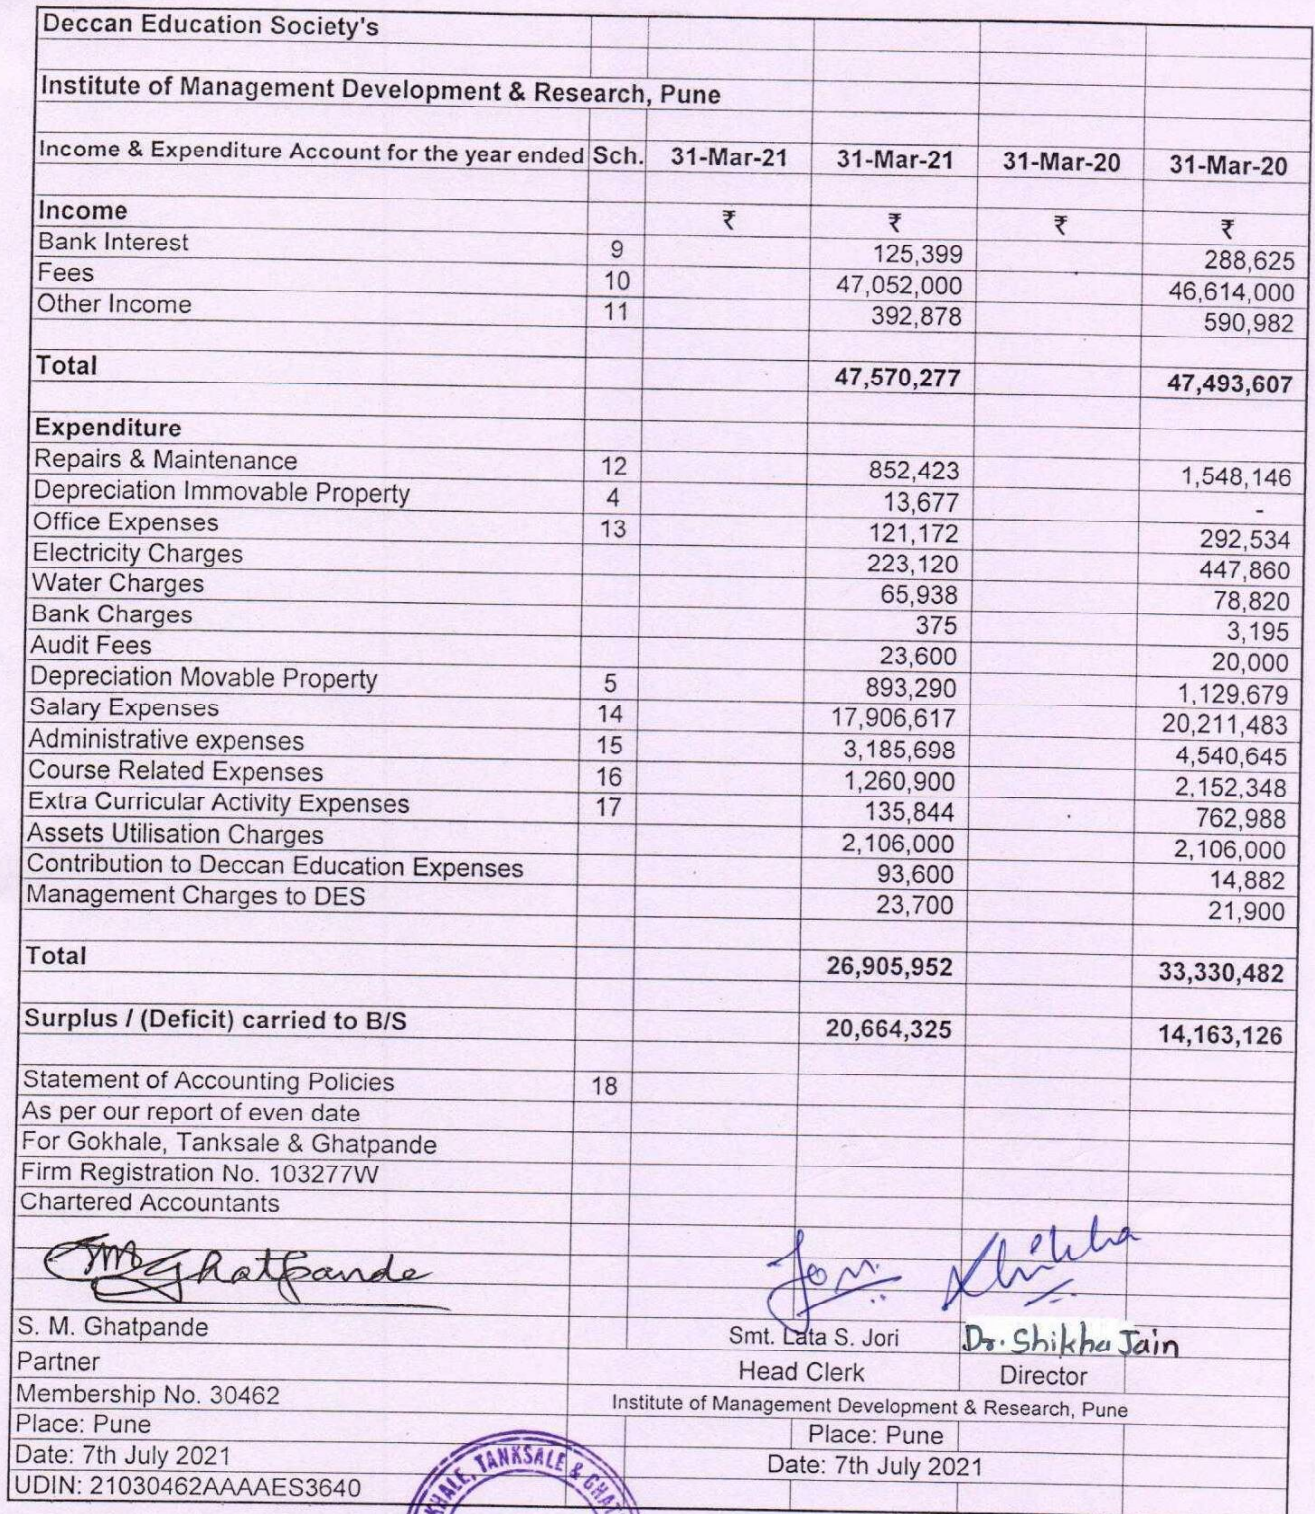 Deccan Education Society's
Institute of Management Development & Research, Pune
Income & Expenditure Account for the year ended Sch. 31-Mar-21 31-Mar-21 31-Mar-20 31-Mar-20
Income ₹ ₹ ₹ ₹
Bank Interest 9 125,399 288,625
Fees 10 47,052,000 46,614,000
Other Income 11 392,878 590,982
Total 47,570,277 47,493,607
Expenditure
Repairs & Maintenance 12 852,423 1,548,146
Depreciation Immovable Property 4 13,677 -
Office Expenses 13 121,172 292,534
Electricity Charges 223,120 447,860
Water Charges 65,938 78,820
Bank Charges 375 3,195
Audit Fees 23,600 20,000
Depreciation Movable Property 5 893,290 1,129,679
Salary Expenses 14 17,906,617 20,211,483
Administrative expenses 15 3,185,698 4,540,645
Course Related Expenses 16 1,260,900 2,152,348
Extra Curricular Activity Expenses 17 135,844 762,988
Assets Utilisation Charges 2,106,000 2,106,000
Contribution to Deccan Education Expenses 93,600 14,882
Management Charges to DES 23,700 21,900
Total 26,905,952 33,330,482
Surplus / (Deficit) carried to B/S 20,664,325 14,163,126
Statement of Accounting Policies 18
As per our report of even date
For Gokhale, Tanksale & Ghatpande
Firm Registration No. 103277W
Chartered Accountants
SMGhatpande Jori Shikha
S. M. Ghatpande Smt. Lata S. Jori Dr. Shikha Jain
Partner Head Clerk Director
Membership No. 30462 Institute of Management Development & Research, Pune
Place: Pune Place: Pune
Date: 7th July 2021 Date: 7th July 2021
UDIN: 21030462AAAAES3640
TANKSALE &